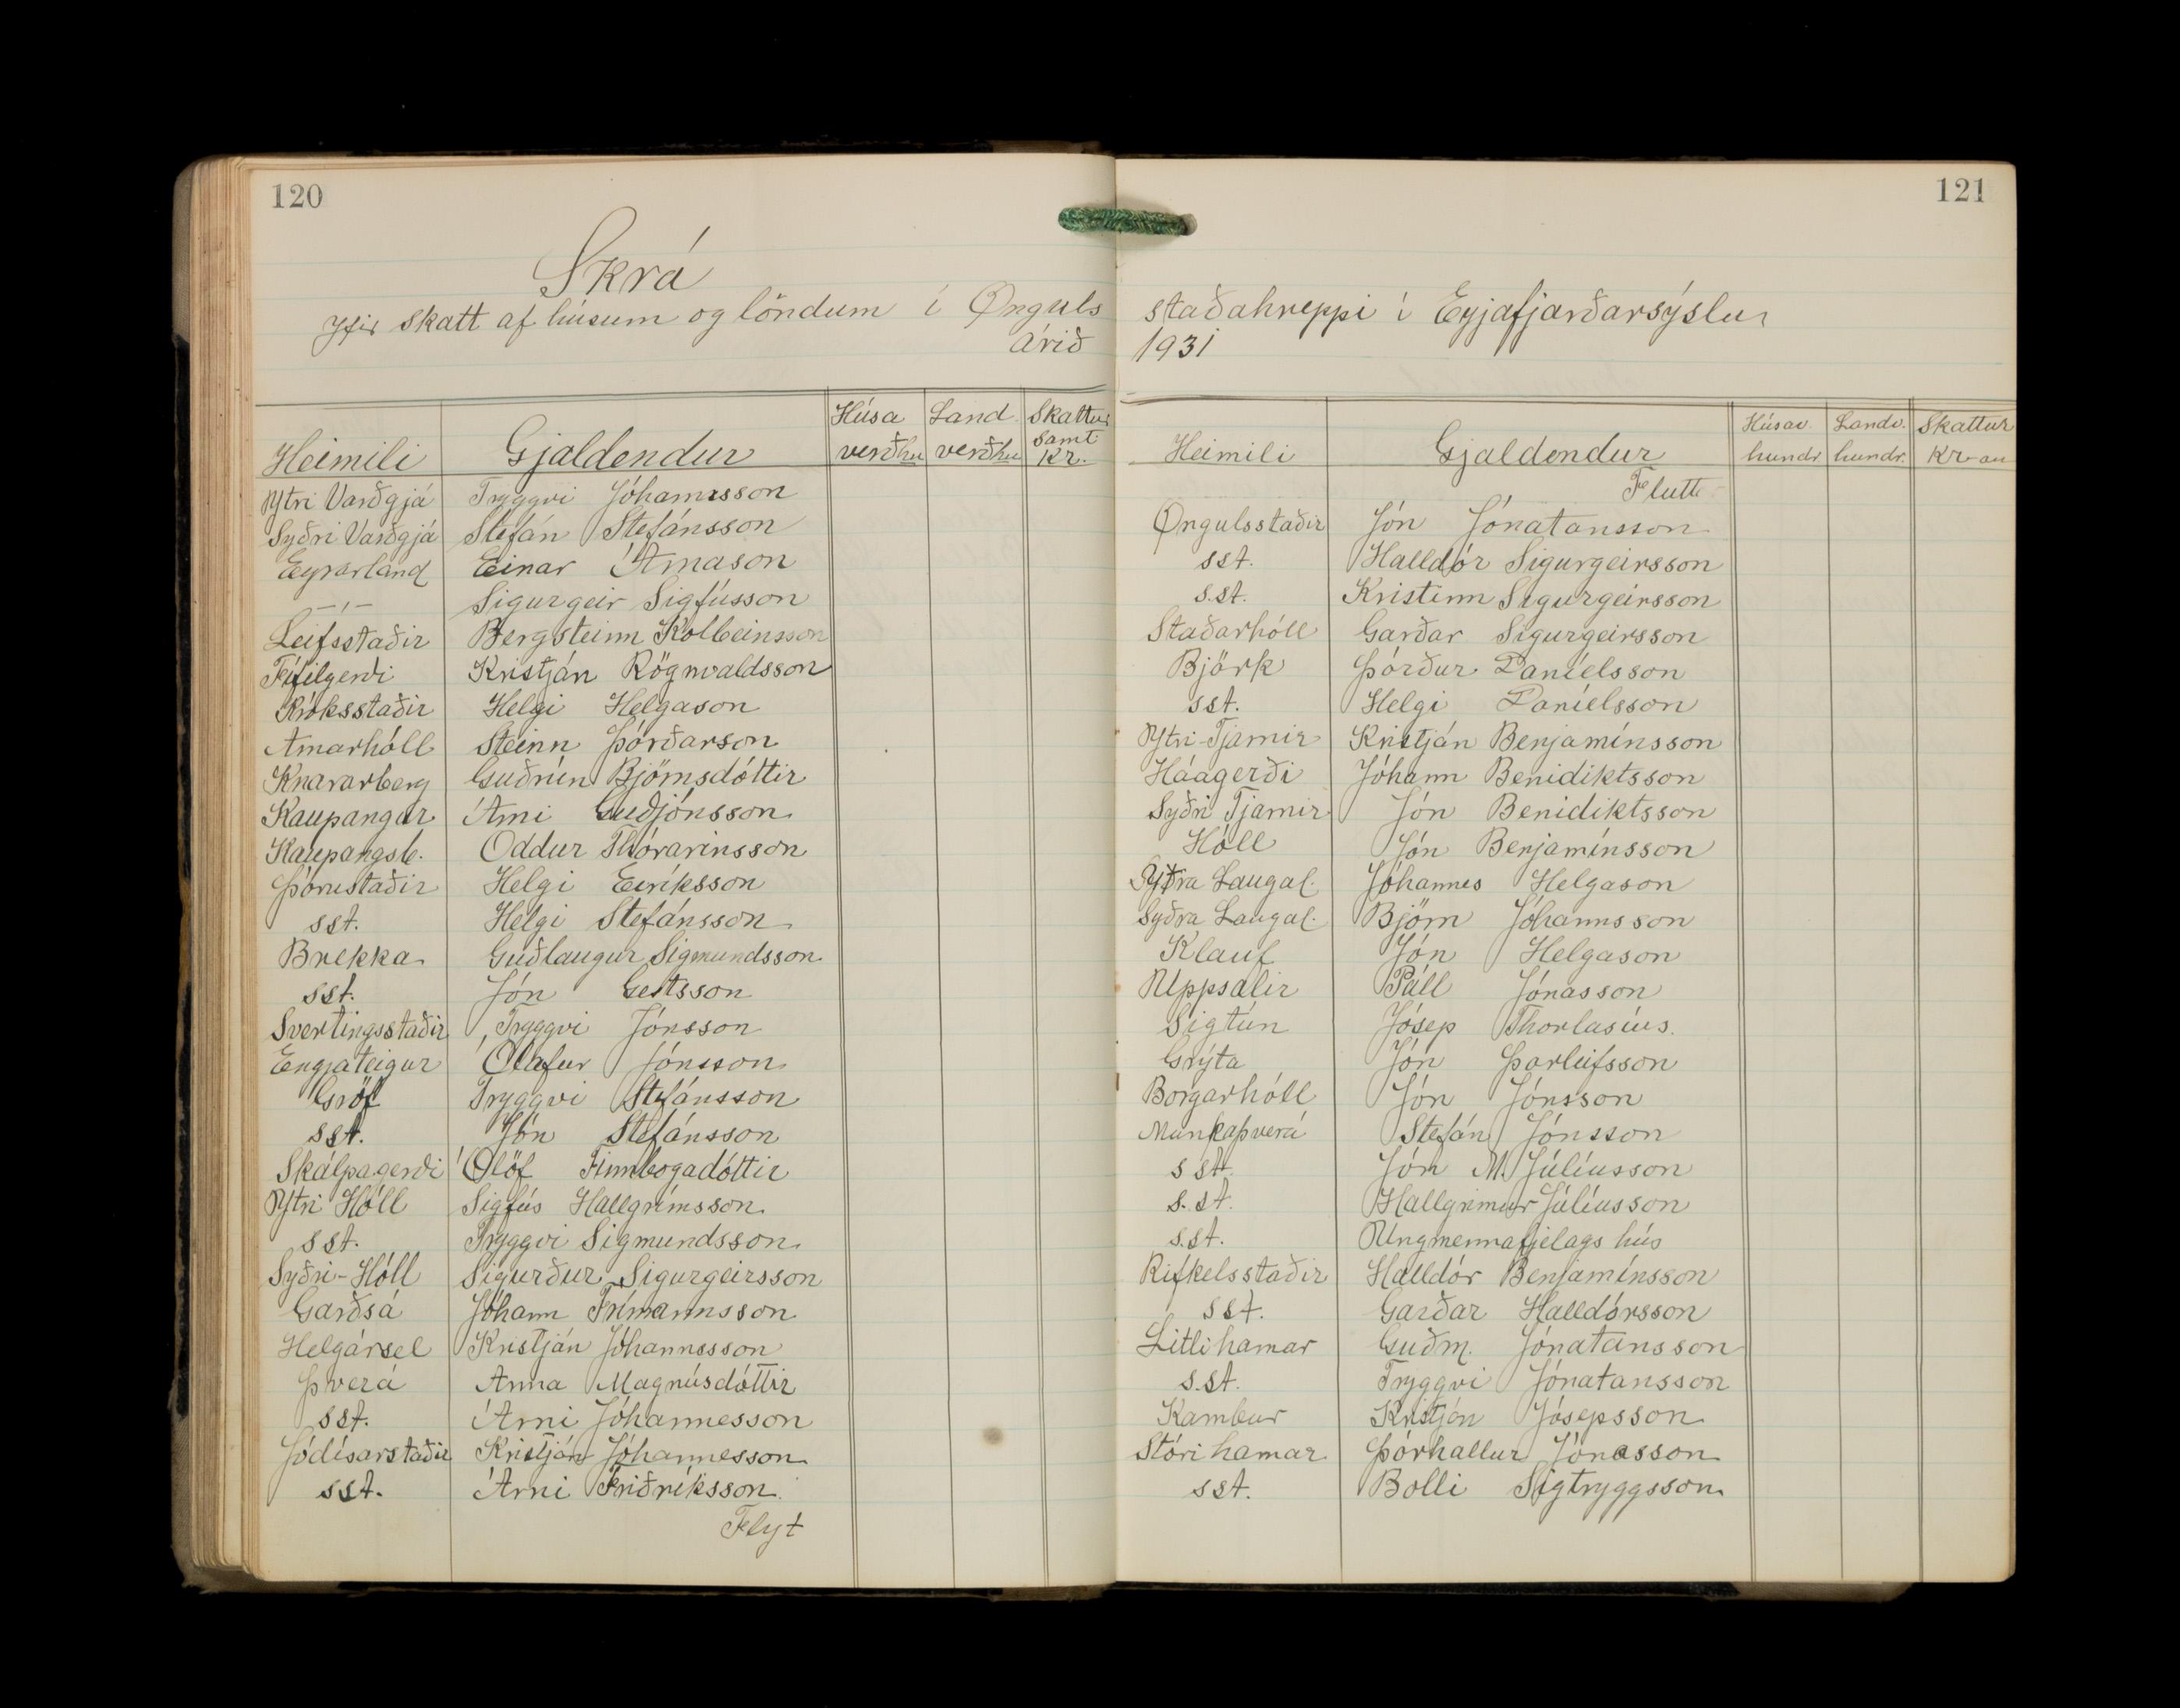 120
Skrá
Yfir skatt af húsum og löndum í Önguls
árið
Heimili Gjaldendur Húsa verðhu Land verðhu Skattur samt Kr.
Ytri Varðgjá Tryggvi Jóhannsson
Syðri Varðgjá Stefán Stefánsson
Eyrarland Einar Árnason
-"- Sigurgeir Sigfússon
Leifsstaðir Bergsteinn Kolbeinsson
Fífilgerði Kristján Rögnvaldsson
Króksstaðir Helgi Helgason
Arnarhóll Steinn Þórðarson
Knararberg Guðrún Björnsdóttir
Kaupangur Árni Guðjónsson
Kaupangsb. Oddur Thórarinsson
Þórustaðir Helgi Eiríksson
sst. Helgi Stefánsson
Brekka Guðlaugur Sigmundsson
sst. Jón Gestsson
Svertingsstaðir Tryggvi Jónsson
Engjateigur Ólafur Jónsson
Gröf Tryggvi Stefánsson
sst. Jón Stefánsson
Skálpagerði Ólöf Finnbogadóttir
Ytri Hóll Sigfús Hallgrímsson
sst. Tryggvi Sigmundsson
Syðri-Hóll Sigurður Sigurgeirsson
Garðsá Jóhann Frímannsson
Helgársel Kristján Jóhannsson
Þverá Anna Magnúsdóttir
sst. Árni Jóhannesson
Jódísarstaðir Kristján Jóhannesson
sst. Árni Friðriksson
Flyt
121
staðahreppi í Eyjafjarðarsýslu
1931
Heimili Gjaldendur Húsav. hundr Landv. hundr. Skattur Kr-au
Flutt
Öngulsstaðir Jón Jónatansson
sst. Halldór Sigurgeirsson
s.st. Kristinn Sigurgeirsson
Staðarhóll Garðar Sigurgeirsson
Björk Þórður Daníelsson
sst. Helgi Daníelsson
Ytri-Tjarnir Kristján Benjamínsson
Háagerði Jóhann Benidiktsson
Syðri Tjarnir Jón Benidiktsson
Hóll Jón Benjamínsson
Ytra Laugal. Jóhannes Helgason
Syðra Laugal. Björn Jóhannsson
Klauf Jón Helgason
Uppsalir Páll Jónasson
Sigtún Jósep Thorlasíus.
Grýta Jón Þorleifsson
Borgarhóll Jón Jónsson
Munkaþverá Stefán Jónsson
s st. Jón M. Júlíusson
s. st. Hallgrímur Júlíusson
s.st. Ungmennafjelags hús
Rifkelsstaðir Halldór Benjamínsson
sst. Garðar Halldórsson
Litlihamar Guðm. Jónatansson
s.st. Tryggvi Jónatansson
Kambur Kristján Jósepsson
Stóri hamar Þórhallur Jónasson
sst. Bolli Sigtryggsson